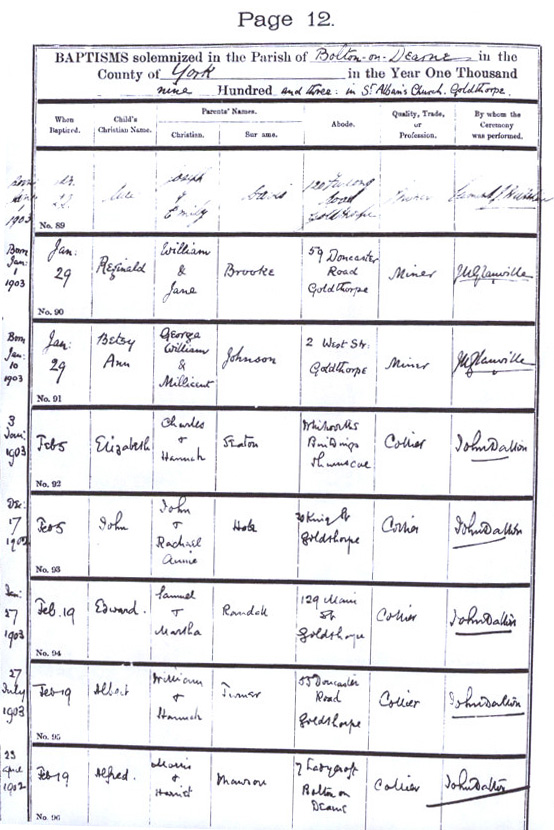 Page 12.
BAPTISMS solemnized in the Parish of Bolton-on-Dearne in the
County of York in the Year One Thousand
nine Hundred and three: in St Alban's Church, Goldthorpe.
When Baptized.
Child's Christian Name.
Parents' Names.
Christian.
Surname.
Abode.
Quality, Trade, or Profession.
By whom the Ceremony was performed.
1903
22
Joseph
&
Emily
Road
Goldthorpe
Miner
No. 89
Born
Jan:
1
1903
Jan:
29
Reginald
William
&
Jane
Brooke
59 Doncaster
Road
Goldthorpe
Miner
JMGlanville
No. 90
Born
Jan:
10
1903
Jan:
29
Betsy
Ann
George
William
&
Millicent
Johnson
2 West Str:
Goldthorpe
Miner
JMGlanville
No. 91
3
1903
Feb 5
Elizabeth
Charles
+
Hannah
Seaton
Whitworths
Buildings
Thurnscoe
Collier
John Dalton
No. 92
Dec:
17
1902
Feb 5
John
John
+
Rachael
Annie
King St
Goldthorpe
Collier
John Dalton
No. 93
Jan:
27
1903
Feb. 19
Edward.
Samuel
+
Martha
Randall
129 Main
St
Goldthorpe
Collier
John Dalton
No. 94
27
July
1903
Feb 19
Albert
William
+
Hannah
Turner
55 Doncaster
Road
Goldthorpe
Collier
John Dalton
No. 95
23
1902
Feb 19
Alfred.
Morris
+
Harriet
Mawson
7 Ladycroft
Bolton on
Dearne
Collier
John Dalton
No. 96